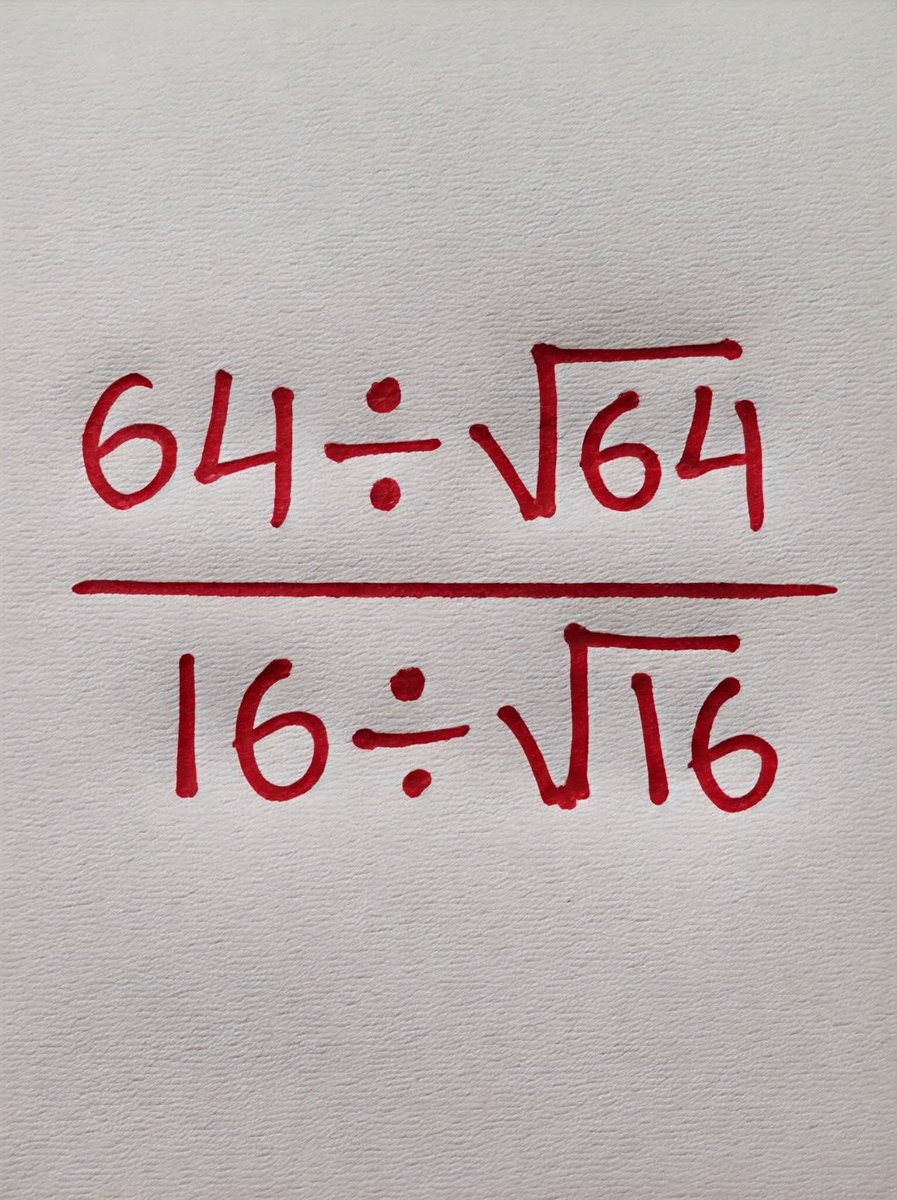 64÷√64
16÷√16